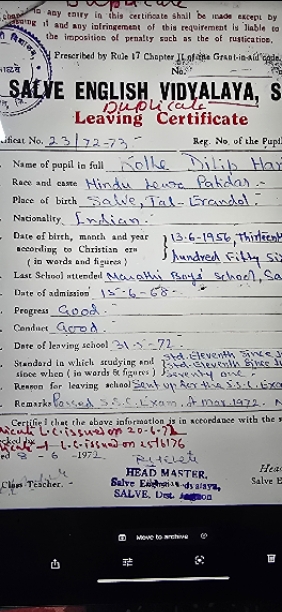 Duplicate
in any entry in this certificate shall be made except by
and any infringement of this requirement is liable to
the imposition of penalty such as the of rustication.
Prescribed by Rule 17 Chapter II of the Grant-in-aid code,
No.
SALVE ENGLISH VIDYALAYA, S
Duplicate
Leaving Certificate
No. 23/72-73 Reg. No. of the Pupil
Name of pupil in full Kolhe Dilip Har
Race and caste Hindu Leva Patidar
Place of birth Salve, Tal-Erandol
Nationality Indian
Date of birth, month and year
according to Christian era
(in words and figures)
} 13-6-1956, Thirteent
hundred Fifty Six
Last School attended Marathi Boys' School, Sa
Date of admission 15-6-68
Progress Good
Conduct Good
Date of leaving school 31-5-72
Standard in which studying and
since when (in words & figures)
Std. Eleventh Since J
Seventy one
Reason for leaving school Sent up for the S.S.C. Exa
Remarks Passed S.S.C. Exam. of Mar. 1972.
Certified that the above information is in accordance with the s
L.C. issued on 20-6-72
L.C. issued on 25/6/76
8 - 6 -1972
Class Teacher.
HEAD MASTER,
SALVE, Dist.
Hea
Salve E
Move to archive